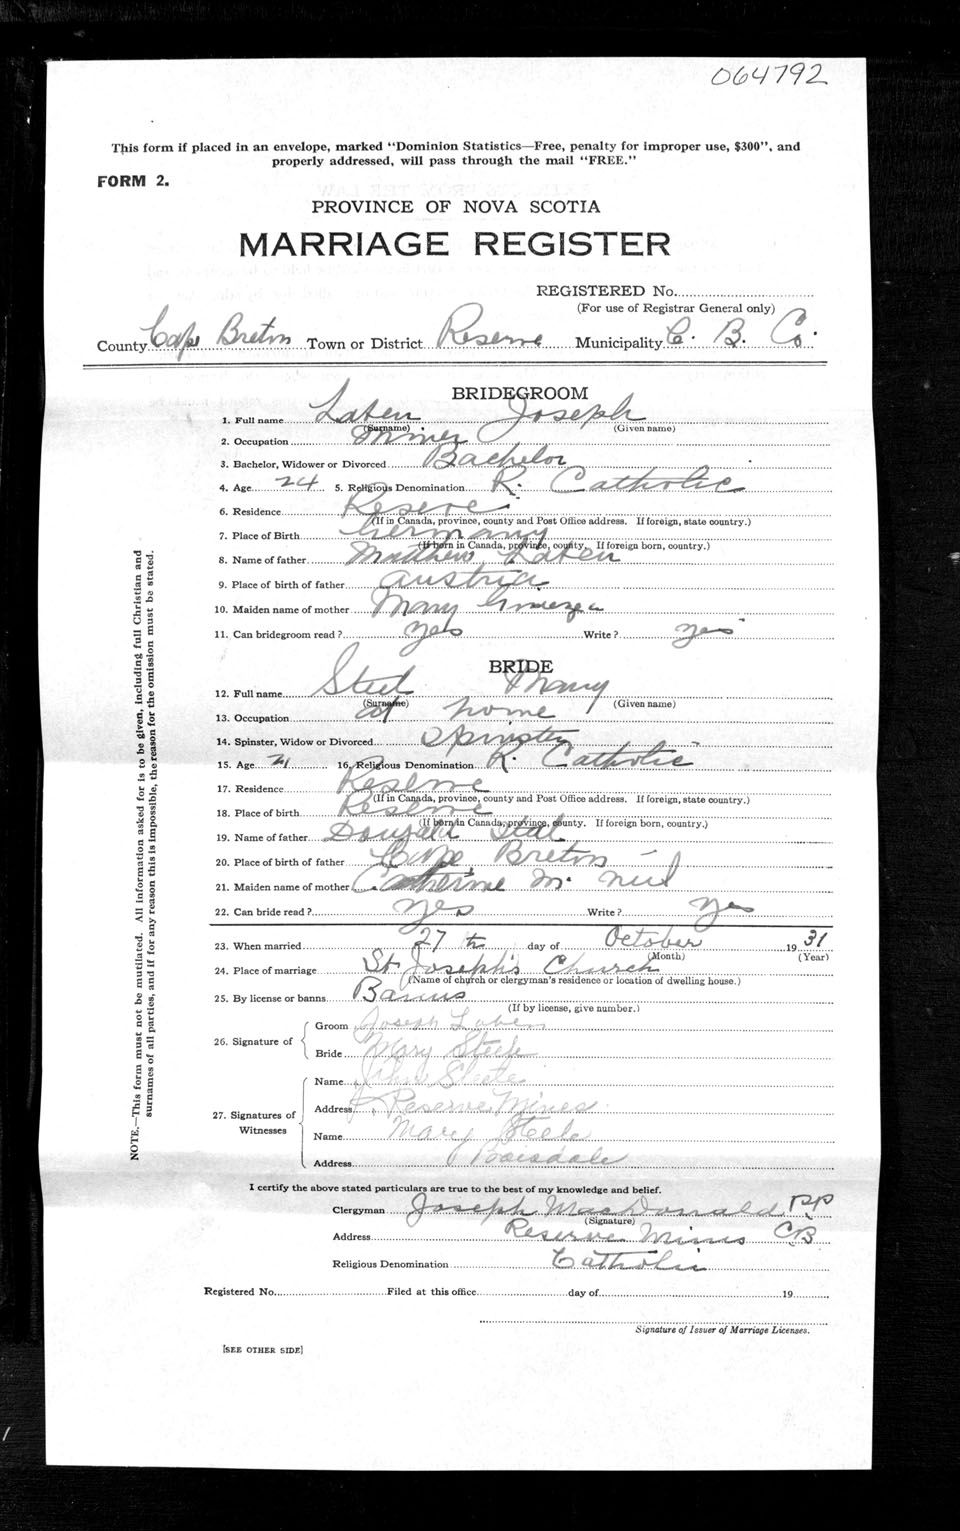 064792
This form if placed in an envelope, marked "Dominion Statistics—Free, penalty for improper use, $300", and
properly addressed, will pass through the mail "FREE."
FORM 2.
PROVINCE OF NOVA SCOTIA
MARRIAGE REGISTER
REGISTERED No.
(For use of Registrar General only)
County Cape Breton Town or District Reserve Municipality C. B. Co.
BRIDEGROOM
1. Full name Laben Joseph
(Surname) (Given name)
2. Occupation Miner
3. Bachelor, Widower or Divorced Bachelor
4. Age 24 5. Religious Denomination R. Catholic
6. Residence Reserve
(If in Canada, province, county and Post Office address. If foreign, state country.)
7. Place of Birth Germany
(If born in Canada, province, county. If foreign born, country.)
8. Name of father Mathew Laben
9. Place of birth of father Austria
10. Maiden name of mother Mary
11. Can bridegroom read? yes Write? yes
BRIDE
12. Full name Steel Mary
(Surname) (Given name)
13. Occupation at home
14. Spinster, Widow or Divorced Spinster
15. Age 21 16. Religious Denomination R. Catholic
17. Residence Reserve
(If in Canada, province, county and Post Office address. If foreign, state country.)
18. Place of birth Reserve
(If born in Canada, province, county. If foreign born, country.)
19. Name of father Dougald Steel
20. Place of birth of father Cape Breton
21. Maiden name of mother Catherine Mc Neil
22. Can bride read? yes Write? yes
23. When married 27th day of October 1931
(Month) (Year)
24. Place of marriage St Joseph's Church
(Name of church or clergyman's residence or location of dwelling house.)
25. By license or banns Banns
(If by license, give number.)
26. Signature of
Groom Joseph Laben
Bride Mary Steele
27. Signatures of Witnesses
Name John Steele
Address Reserve Mines
Name Mary Steele
Address Boisdale
I certify the above stated particulars are true to the best of my knowledge and belief.
Clergyman Joseph MacDonald PP
(Signature)
Address Reserve Mines CB
Religious Denomination Catholic
Registered No. Filed at this office day of 19
Signature of Issuer of Marriage Licenses.
[SEE OTHER SIDE]
NOTE.—This form must not be mutilated. All information asked for is to be given, including full Christian and
surnames of all parties, and if for any reason this is impossible, the reason for the omission must be stated.